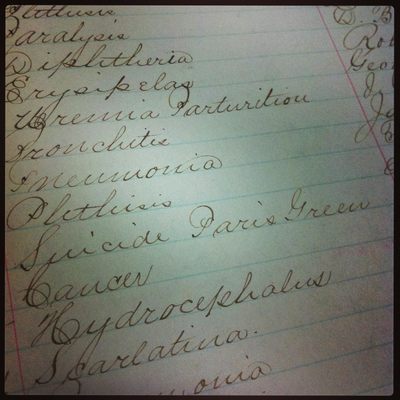 Phthisis
Paralysis
Diphtheria
Erysipelas
Uremia Parturition
Bronchitis
Pneumonia
Phthisis
Suicide Paris Green
Cancer
Hydrocephalus
Scarlatina.
D. B
Geo